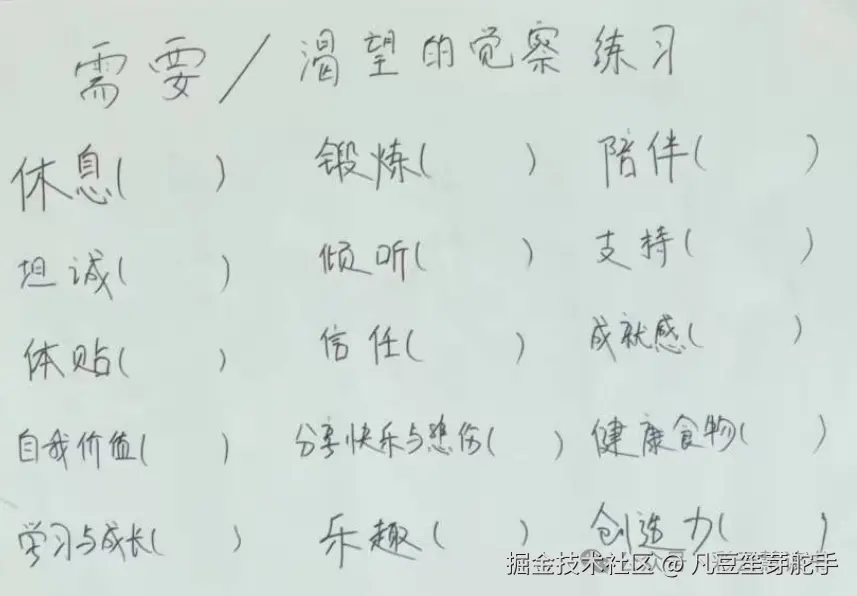 需要/渴望的觉察练习
休息( ) 锻炼( ) 陪伴( )
坦诚( ) 倾听( ) 支持( )
体贴( ) 信任( ) 成就感( )
自我价值( ) 分享快乐与悲伤( ) 健康食物( )
学习与成长( ) 乐趣( ) 创造力( )
掘金技术社区 @ 凡豆笙芽舵手